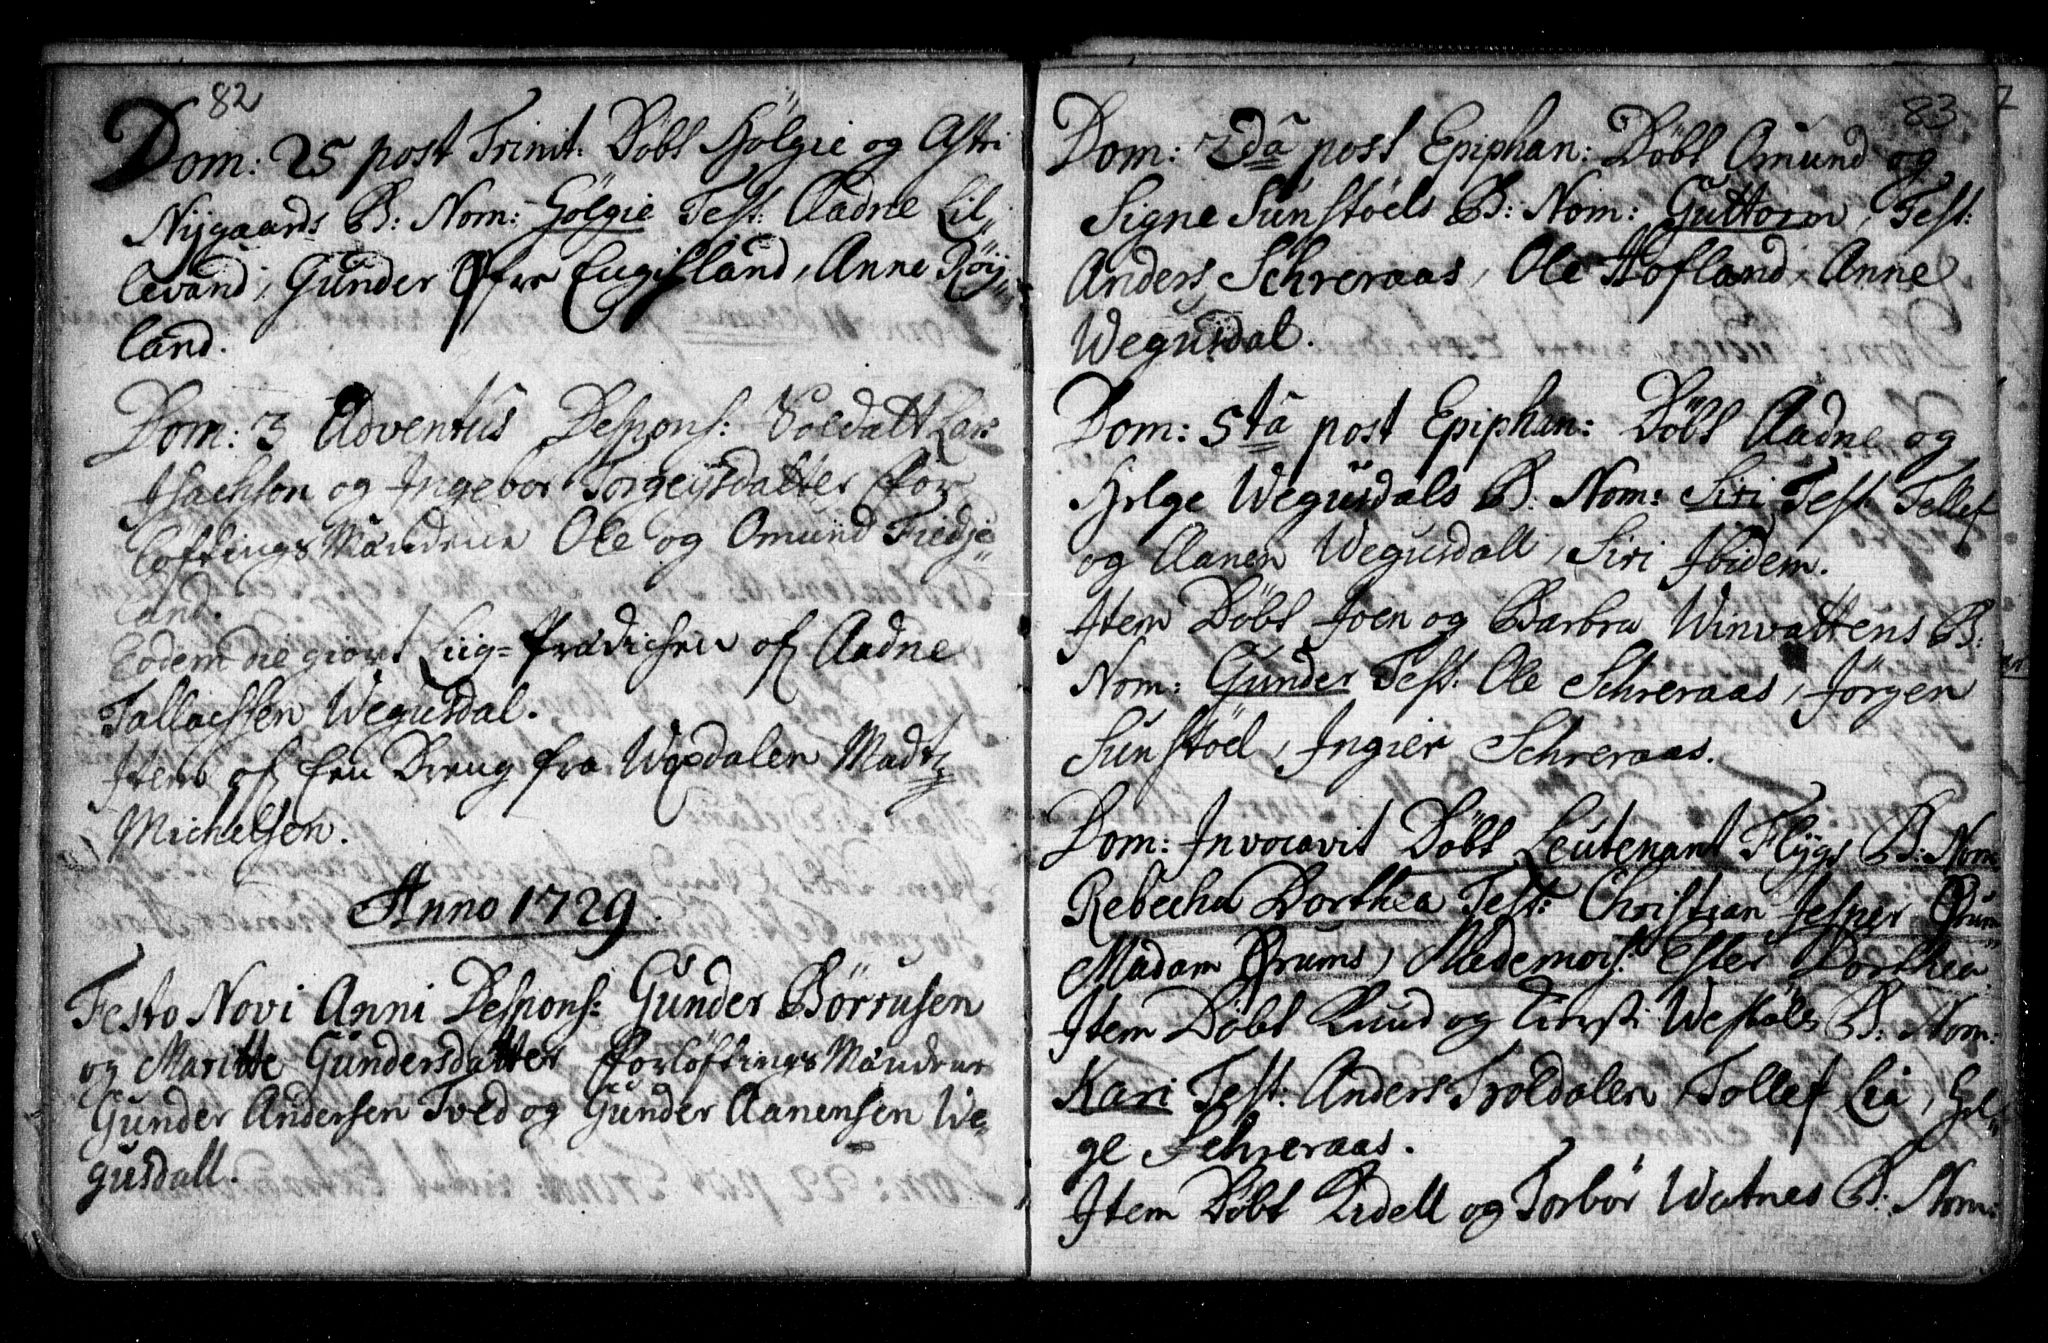 82
Dom: 25 post Trinit: Döbt Hölgie og Astri
Nijgaards B: Nom: Hölgie Test: Aadne Lil„
levand, Gunder Øfre Eugisland, Anne Röij„
land.
Dom: 3 Adventus Despons: Soldatt Lars
Isachson og Ingebor Torgeijsdatter ffor„
löftingsMændene Ole og Omund Fiedje„
land.
Eodem die giort Liig=Prædichen of Aadne
Tallachsen Wegusdal.
Item of Een Dreng fra Wosdalen Madtz
Michelsen.
Anno 1729.
Festo Novi Anni Despons: Gunder Börrusen
og Maritte Gundersdatter fforlöftingsMændene
Gunder Andersen Tved og Gunder Aanensen We„
gusdall.
83
Dom: 2da post Epiphan: Döbt Omund og
Signe Sunstöels B: Nom: Guttorm, Test:
Anders Schreraas, Ole Hofland, Anne
Wegusdal.
Dom: 5ta post Epiphan: Döbt Aadne og
Helge Wegusdals B: Nom: Siri Test Tellef
og Aanen Wegusdall, Siri Ibidem.
Item Döbt Joen og Barbra Winvattens B:
Nom: Gunder Test: Ole Schreraas, Jörgen
Sunstöel, Ingier Schreraas.
Dom: Invocavit Döbt Leutenant Flygs B: Nom:
Rebecha Dorthea Test: Christian Jesper Ørum„
Madam Ørums, Mademois: Ester Dorthea
Item Döbt Knud og Kirsti Westöls B: Nom:
Kari Test: Anders Troldalen, Tollef Lia, Hel„
ge Schreraas.
Item Döbt Kidell og Torbor Watnes B: Nom: